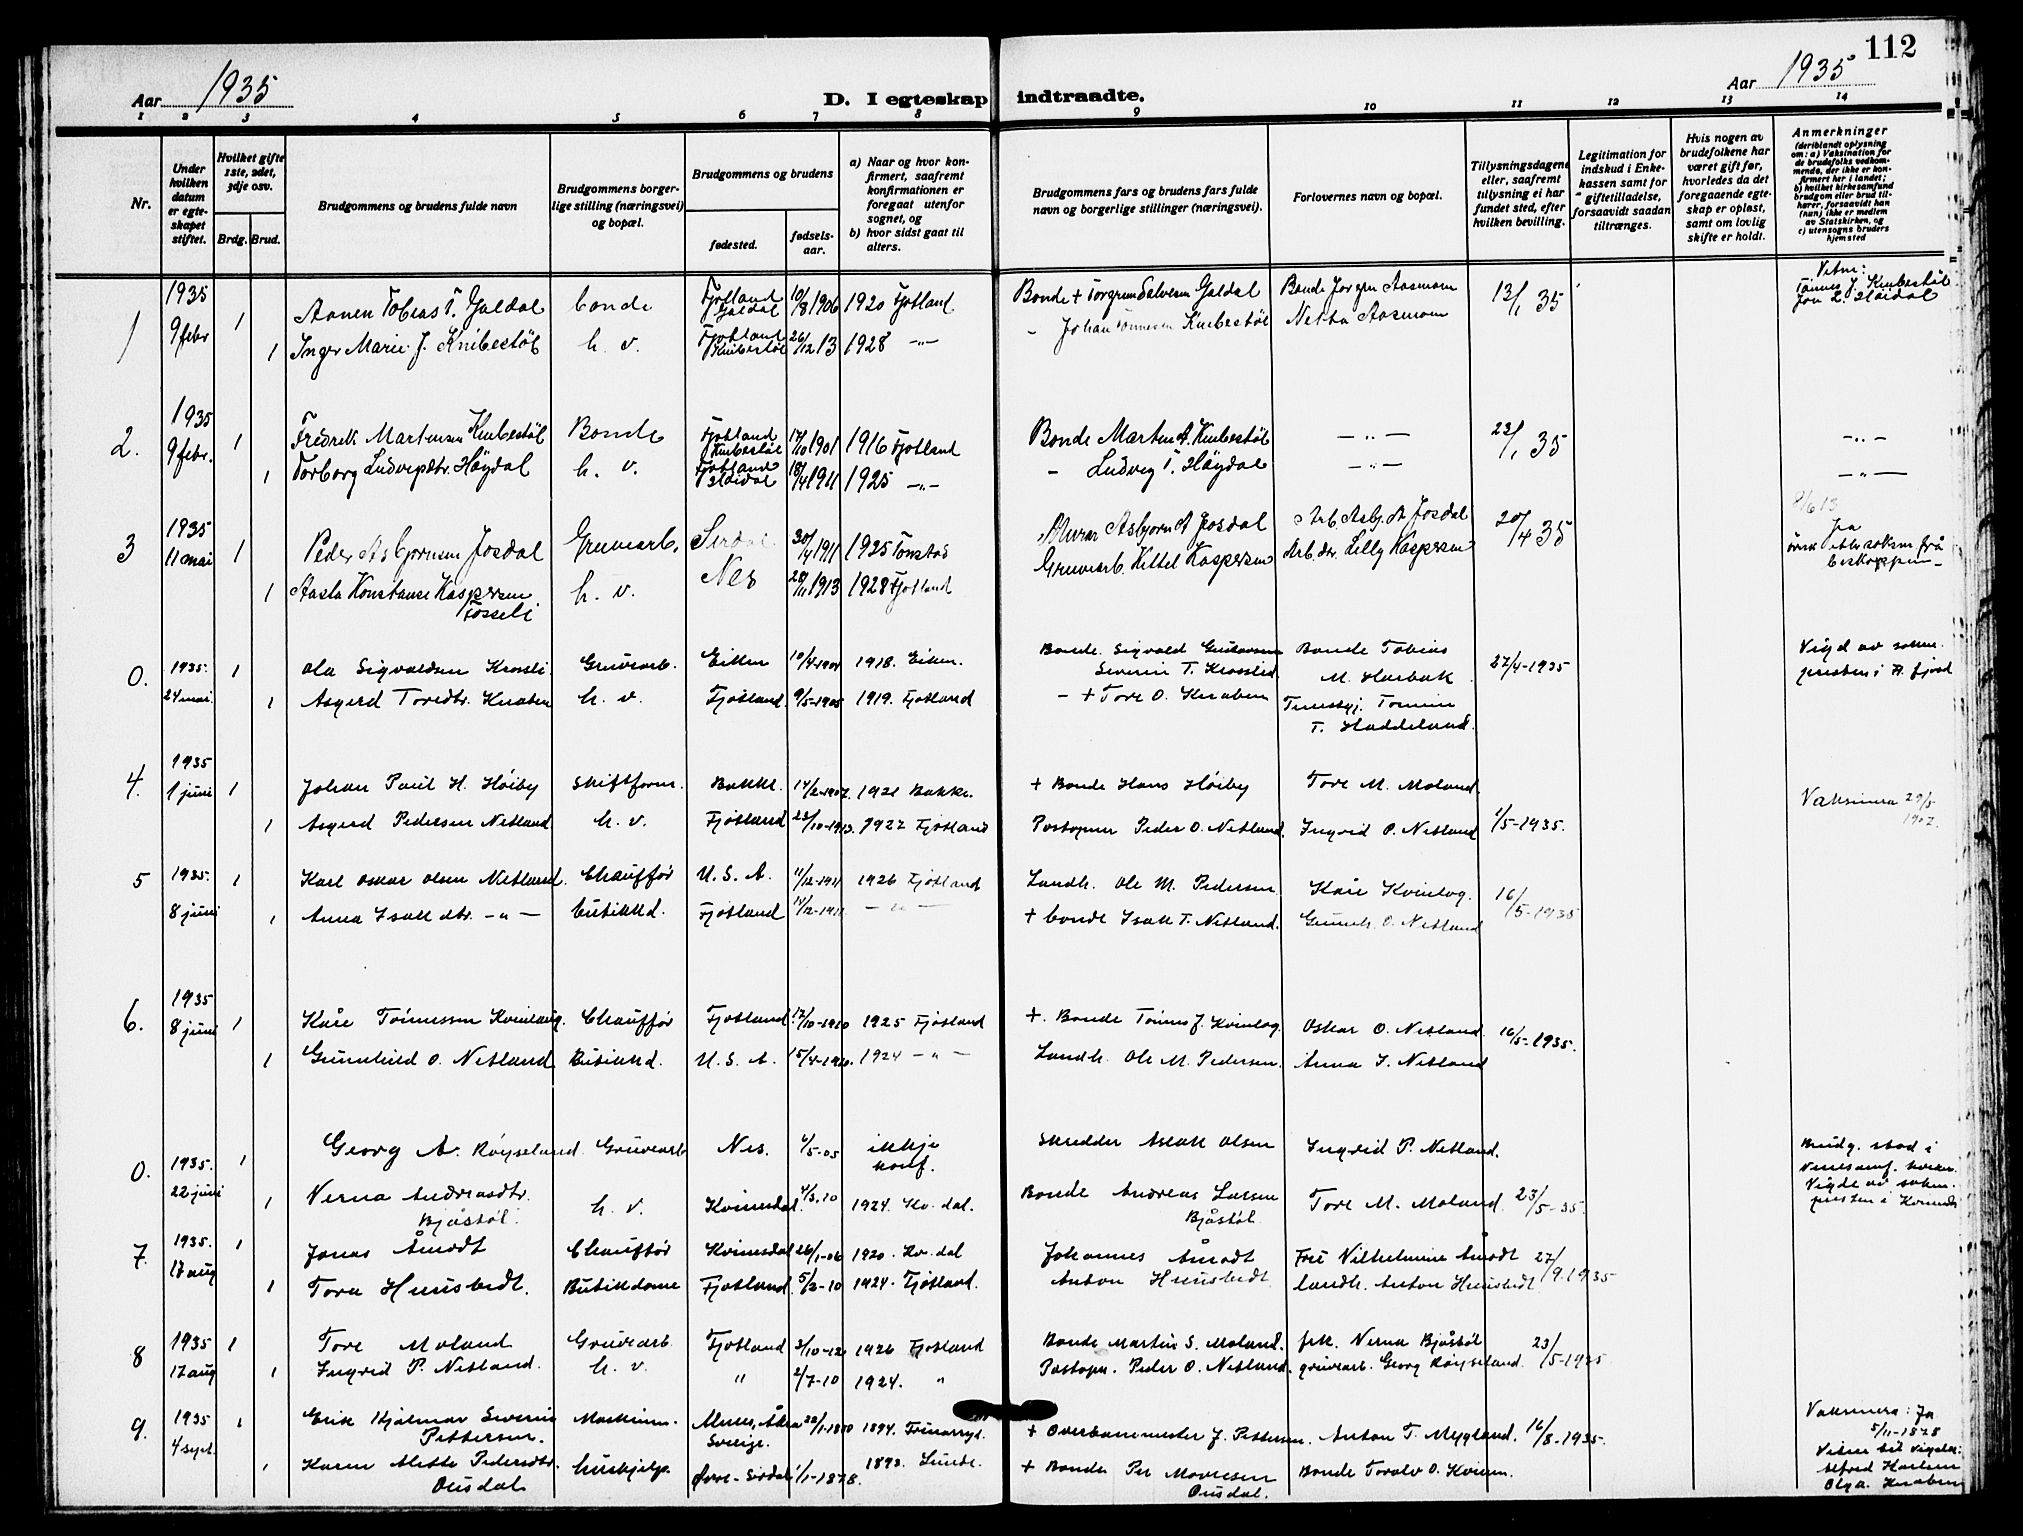 112
Aar 1935
D. I egteskap indtraadte.
Aar 1935
1 2 3 4 5 6 7 8 9 10 11 12 13 14
Nr.
Under hvilken datum er egteskapet stiftet.
Hvilket gifte 1ste, 2det, 3dje osv.
Brdg. Brud.
Brudgommens og brudens fulde navn
Brudgommens borgerlige stilling (næringsvei) og bopæl.
Brudgommens og brudens
fødested.
fødselsaar.
a) Naar og hvor konfirmert, saafremt konfirmationen er foregaat utenfor sognet, og
b) hvor sidst gaat til alters.
Brudgommens fars og brudens fars fulde navn og borgerlige stillinger (næringsvei).
Forlovernes navn og bopæl.
Tillysningsdagene eller, saafremt tillysning ei har fundet sted, efter hvilken bevilling.
Legitimation for indskud i Enkekassen samt for giftetilladelse, forsaavidt saadan tiltrænges.
Hvis nogen av brudefolkene har været gift før, hvorledes da det foregaaende egteskap er opløst, samt om lovlig skifte er holdt.
Anmerkninger
(deriblandt oplysning om: a) Vaksination for de brudefolks vedkommende, der ikke er konfirmert her i landet; b) hvilket kirkesamfund brudgom eller brud tilhører, forsaavidt han (hun) ikke er medlem av Statskirken, og c) utensogns bruders hjemsted
1 1935 9 febr 1 Aanen Tobias T. Galdal bonde Fjotland Galdal 10/8 1906 1920 Fjotland Bonde + Torgrim Salvesen Galdal Bonde Jørgen Aasmon 13/1 35 Vitne: Tønnes J. Knibestøl
1 Inger Marie J. Knibestøl h. v. Fjotland Knibestøl 26/12 13 1928 -"- - Johan Tønnesen Knibestøl Netta Aasmon
2. 1935 9 febr. 1 Fredrik Martinsen Knibestøl Bonde Fjotland Knibestøl 17/10 1901 1916 Fjotland Bonde Martin A. Knibestøl -"- 23/1 35 -"-
1 Torborg Ludvigsdtr. Høydal h. v. Fjotland Høidal 18/4 1911 1925 -"- - Ludvig T. Høydal -"- -"-
3 1935 11 mai 1 Peder Asbjørnsen Josdal Gruvearb. Sirdal 30/4 1911 1925 Tonstad Murar Asbjørn A Josdal Arb. Asbj. A Josdal 20/4 35
1 Aasta Konstanse Kaspersen Fosseli h. v. Nes 28/11 1913 1928 Fjotland Gruvearb. Kittel Kaspersen Arb.dr. Lilly Kaspersen
0. 1935. 24 mai. 1 Ola Sigvaldsen Krossli. Gruvearb. Eiken 10/4-1904 1918. Eiken. Bonde Sigvald Gustavsen Bonde Tobias M. Harbak 27/4-1935 Vigd av sokne-
1 Asgerd Toredtr. Knaben h. v. Fjotland. 9/5-1905 1919. Fjotland - + Tore O. Knaben T. Haddeland.
4. 1935 1 juni 1 Johan Paul H. Høiby skiftform. Bakke. 14/2-1907. 1921 Bakke. + Bonde Hans Høiby Tore M. Moland.
1 Asgerd Pedersen Netland h. v. Fjotland 23/10-1913. 1927 Fjotland Postopner Peder O. Netland. Ingrid P. Netland 1/5-1935. Vaksinera 29/5 1907.
5 1935. 8 juni 1 Karl Oskar Olsen Netland. Chauffør U. S. A. 11/12-1911 1926 Fjotland Landh. Ole M. Pedersen Kåre Kvinlog. 16/5-1935
1 Anna Isakdtr. -"- butikkd. Fjotland 14/12-1911. -"- + bonde Isak T. Netland. Gunnh. O. Netland
6. 1935 8 juni 1 Kåre Tønnessen Kvinlaug. Chauffør Fjotland. 12/10-1910 1925 Fjotland +. Bonde Tønnes J. Kvinlog Oskar O. Netland 16/5-1935.
1 Gunnhild O. Netland Butikkd. U. S. A. 15/4-1910. 1924 -"- Landh. Ole M. Pedersen. Anna I. Netland
0. 1935. 22 juni 1 Georg A. Røyseland Gruvearb Nes. 4/5-05 ikkje konf. Skredder Aslak Olsen Ingrid P. Netland. Brudg. stod i
1 Verna Andreasdtr. Bjåstøl. h. v. Kvinesdal. 4/3.10 1924. Kv.dal. Bonde Andreas Larsen Bjåstøl Tore M. Moland. 23/5-35. Vigde av sokn-
presten i Kvinesd
7. 1935. 17 aug 1 Jonas Åmodt Chauffør Kvinesdal 26/1-06 1920. Kv.dal Johannes Åmodt Frk Vilhelmine Åmodt 27/9.1935
1 Tora Hunsbedt. Butikkdame Fjotland. 5/2-10 1924. Fjotland. Anton Hunsbedt landh. Anton Hunsbedt
8 1935 17 aug 1 Tore Moland Gruvearb. Fjotland 3/10-12 1926 Fjotland Bonde Martin S. Moland. frk. Verna Bjåstøl 23/5-1935
1 Ingrid P. Netland. h. v. " 2/7-10 1924. " Postopn. Peder O. Netland. gruvearb. Georg Røyseland.
9. 1935 4 sept. 1 Erik Hjalmar Severin Pettersen. Maskinm. Sverige. 22/1-1880 1894. + Overbanemester J. Pettersen. Anton T. Mygland. 16/8-1935. Vaksinera: Ja 5/11-1878
1 Karen Mette Pedersdtr. Ousdal hushjelp. Øvre-Sirdal 1/1-1878. 1893. Lunde. + Bonde Per Mouresen Ousdal. Bonde Toralv O. Kvinen. Vitner til vigsla: Alfred Harlem Olga Knaben